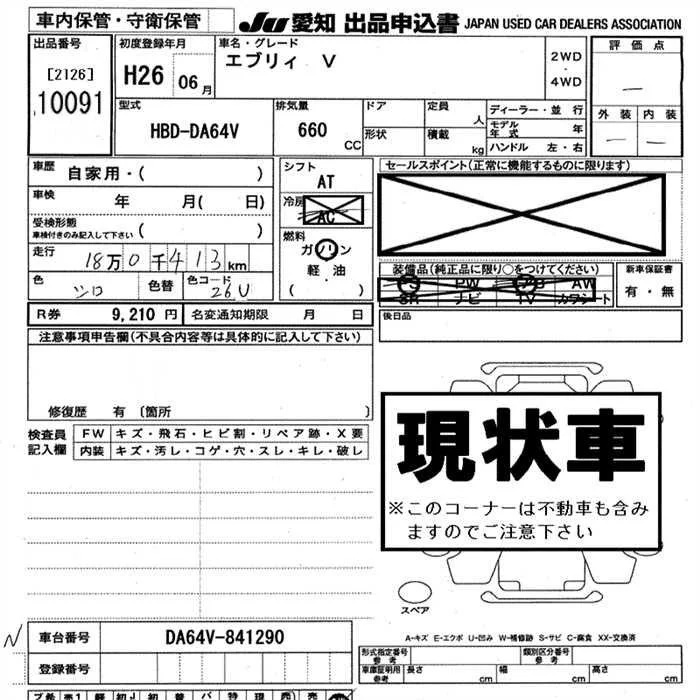 車内保管・守衛保管
JU 愛知 出品申込書 JAPAN USED CAR DEALERS ASSOCIATION
出品番号
[2126]
10091
初度登録年月
H26 06月
車名・グレード
エブリィ V
2WD
・
4WD
評価点
外装 内装
型式
HBD-DA64V
排気量
660 CC
ドア
形状
定員 人
積載 kg
ディーラー・並行
モデル年式 年
ハンドル 左・右
車歴 自家用・( )
車検 年 月( 日)
受検形態
車検付きのみ記入して下さい ( )
走行 18万0千413km
色 シロ 色替 色コード 26U
シフト
AT
冷房
AC
燃料
ガソリン
軽・油
( )
セールスポイント(正常に機能するものに限ります)
装備品(純正品に限り○をつけてください)
PS PW AB AW
SR ナビ TV カワシート
新車保証書
有・無
R券 9,210円 名変通知期限 月 日
後日品
注意事項申告欄(不具合内容等は具体的に記入して下さい)
修復歴 有 〔箇所 〕
検査員記入欄
FW キズ・飛石・ヒビ割・リペア跡・X要
内装 キズ・汚レ・コゲ・穴・スレ・キレ・破レ
現状車
※このコーナーは不動車も含み
ますのでご注意下さい
スペア
A-キズ E-エクボ U-凹み W-補修跡 S-サビ C-腐食 XX-交換済
N 車台番号 DA64V-841290
登録番号
形式指定番号
参考
類別区分番号
参考
車庫証明用
参考
長さ cm 幅 cm 高さ cm